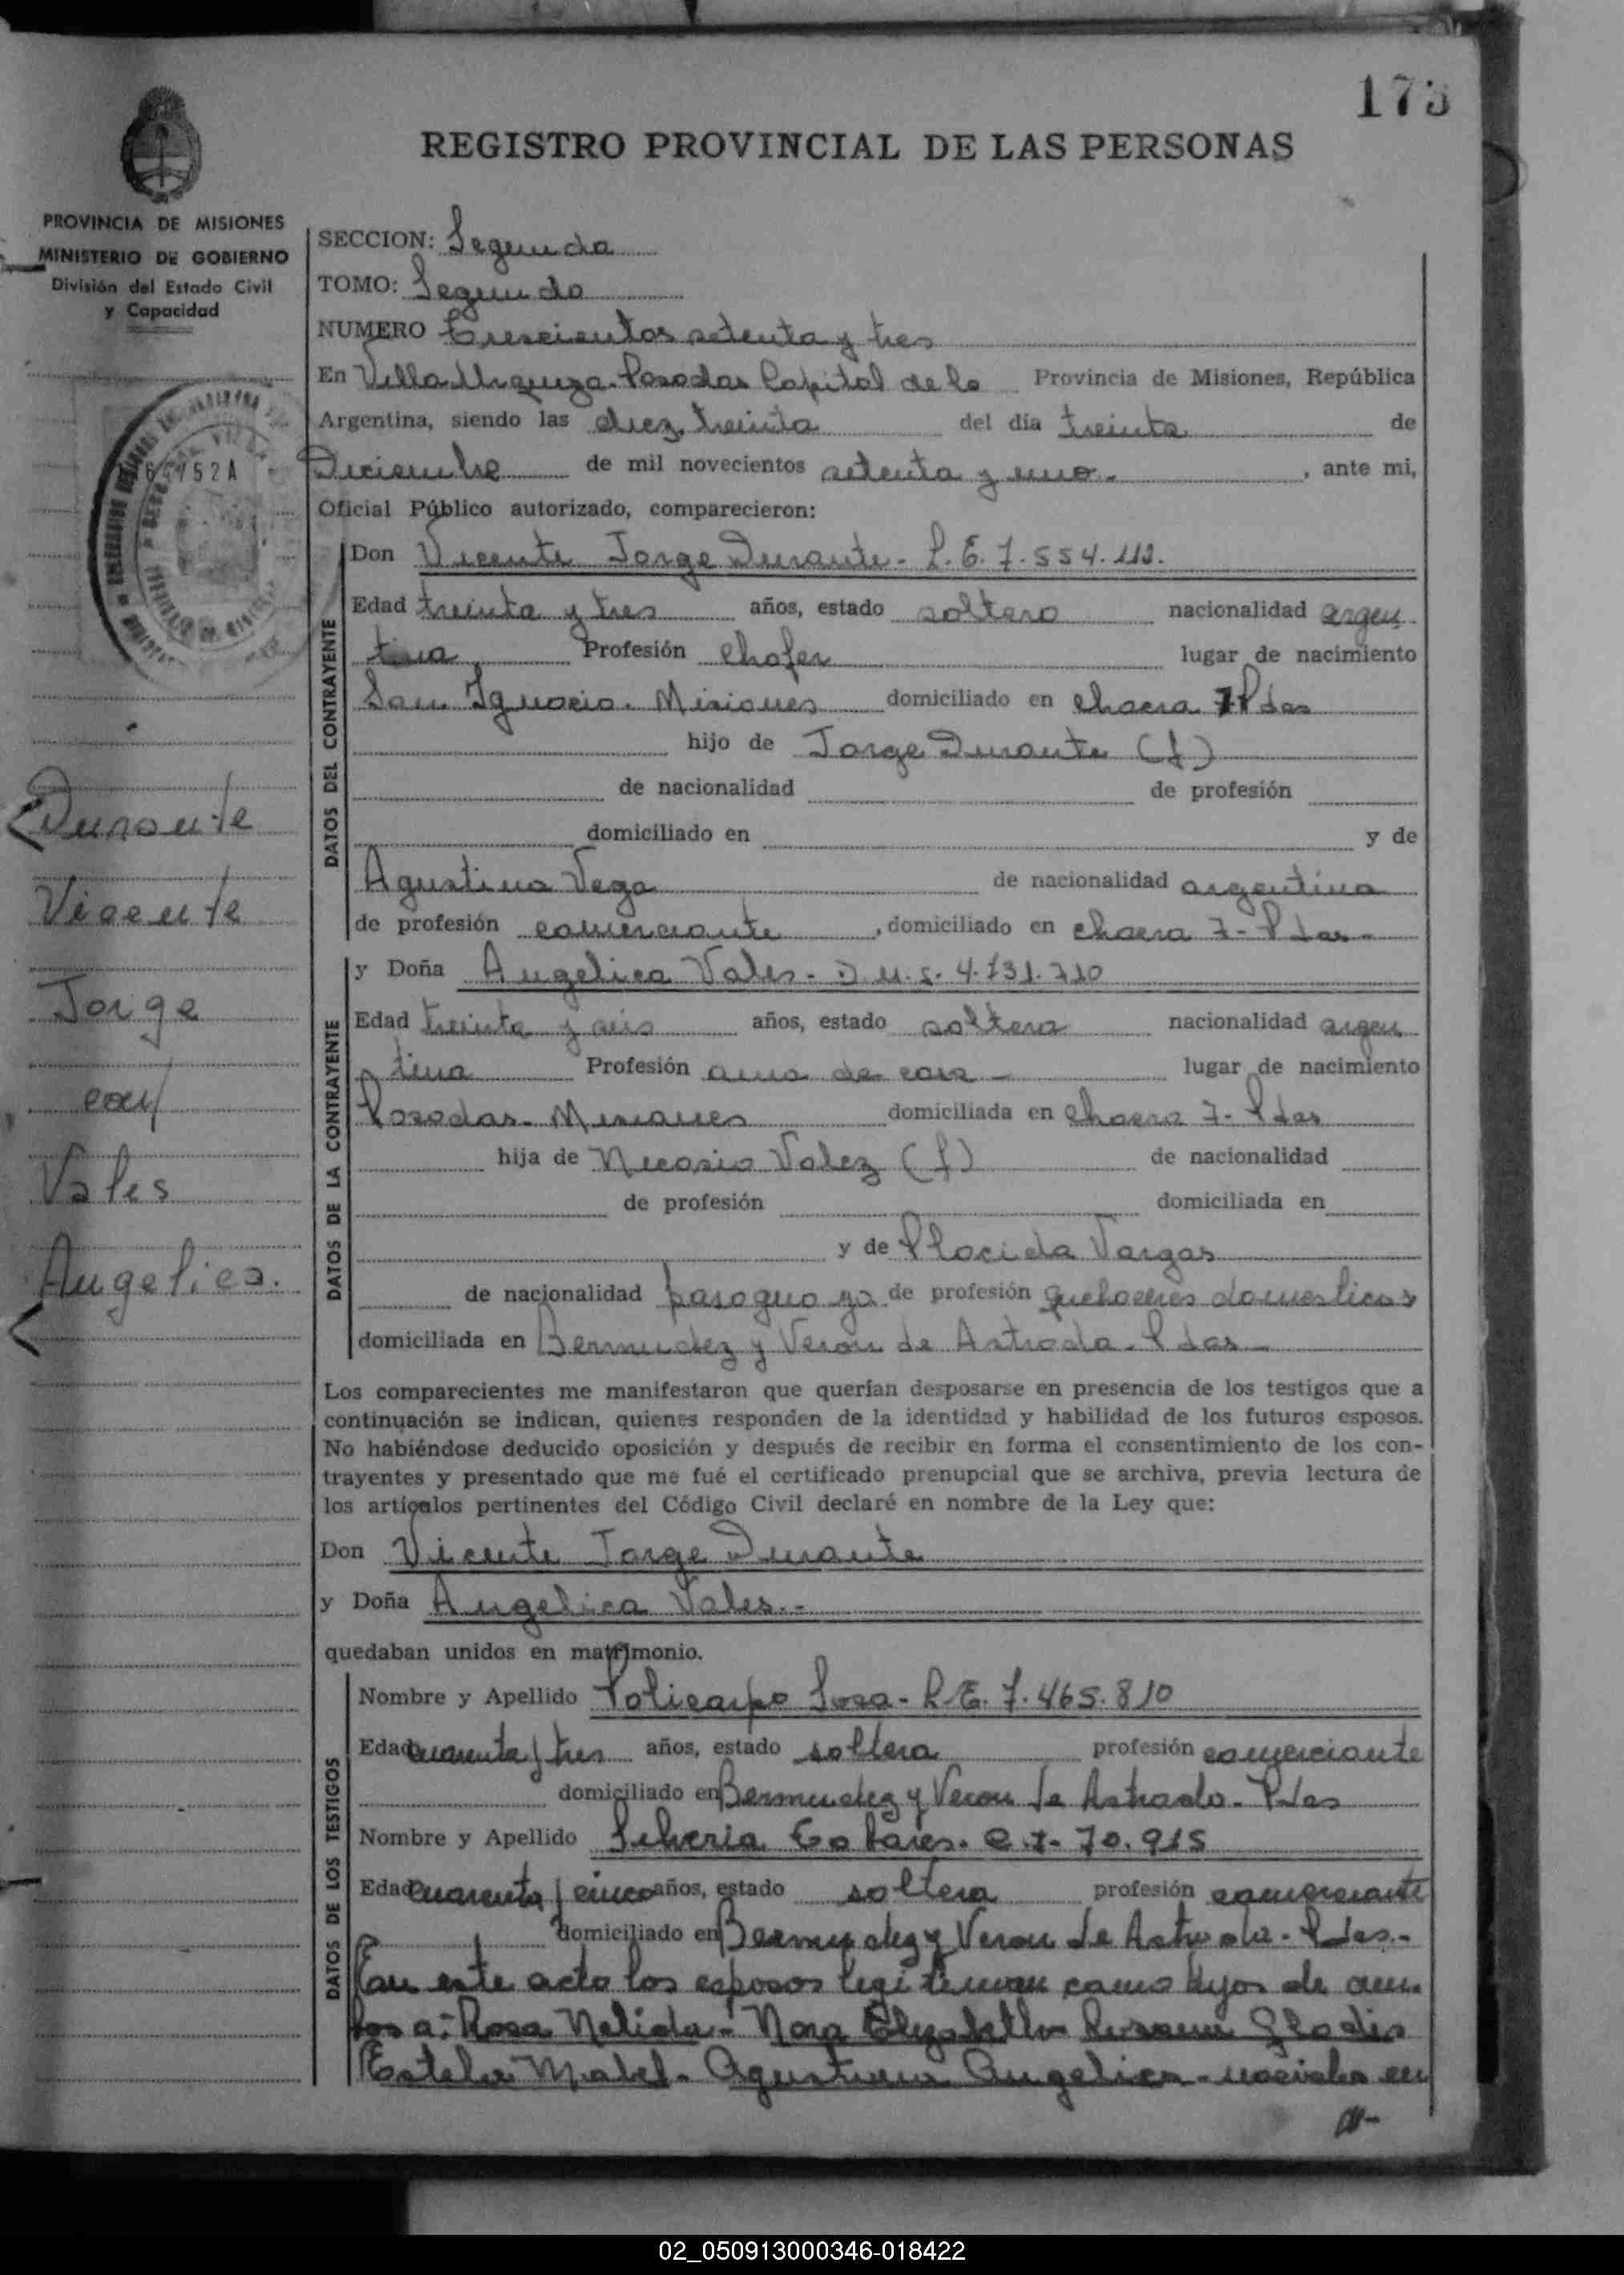 173
REGISTRO PROVINCIAL DE LAS PERSONAS
PROVINCIA DE MISIONES
MINISTERIO DE GOBIERNO
División del Estado Civil
y Capacidad
SECCION: Segunda
TOMO: Segundo
NUMERO Trescientos setenta y tres
En Villa Urquiza. Posadas Capital de la Provincia de Misiones, República
Argentina, siendo las diez, treinta del día treinta de
Diciembre de mil novecientos setenta y uno.- , ante mi,
Oficial Público autorizado, comparecieron:
DATOS DEL CONTRAYENTE
Don Vicente Jorge Durante - L.E. 7.554.112.
Edad treinta y tres años, estado soltero nacionalidad argen
tina Profesión chofer lugar de nacimiento
San Ignacio. Misiones domiciliado en chacra 7 Pdas
hijo de Jorge Durante (f)
de nacionalidad de profesión
domiciliado en y de
Agustina Vega de nacionalidad argentina
de profesión comerciante , domiciliado en chacra 7 - Pdas -
DATOS DE LA CONTRAYENTE
y Doña Angelica Vales - 4.731.710
Edad treinta y seis años, estado soltera nacionalidad argen
tina Profesión ama de casa - lugar de nacimiento
Posadas - Misiones domiciliada en chacra 7 - Pdas
hija de Nicasio Valez (f) de nacionalidad
de profesión domiciliada en
y de Placida Vargas
de nacionalidad paraguaya de profesión quehaceres domesticos
domiciliada en Bermudez y Veron de Astrada - Pdas -
Los comparecientes me manifestaron que querían desposarse en presencia de los testigos que a
continuación se indican, quienes responden de la identidad y habilidad de los futuros esposos.
No habiéndose deducido oposición y después de recibir en forma el consentimiento de los con-
trayentes y presentado que me fué el certificado prenupcial que se archiva, previa lectura de
los artículos pertinentes del Código Civil declaré en nombre de la Ley que:
Don Vicente Jorge Durante
y Doña Angelica Vales.-
quedaban unidos en matrimonio.
DATOS DE LOS TESTIGOS
Nombre y Apellido Policarpo Sosa - L.E. 7.465.810
Edad cuarenta y tres años, estado soltera profesión comerciante
domiciliado en Bermudez y Veron de Astrada - Pdas
Nombre y Apellido Silveria Cabares. C.I. 70.915
Edad cuarenta y cinco años, estado soltera profesión comerciante
domiciliado en Bermudez y Veron de Astrada - Pdas.-
En este acto los esposos legitiman como hijos de am
bos a: Rosa Nelida - Nora Elizabeth Gladis
Estela Mabel - Agustina Angelica - nacidos en
Durante
Vicente
Jorge
con
Vales
Angelica.
02_050913000346-018422